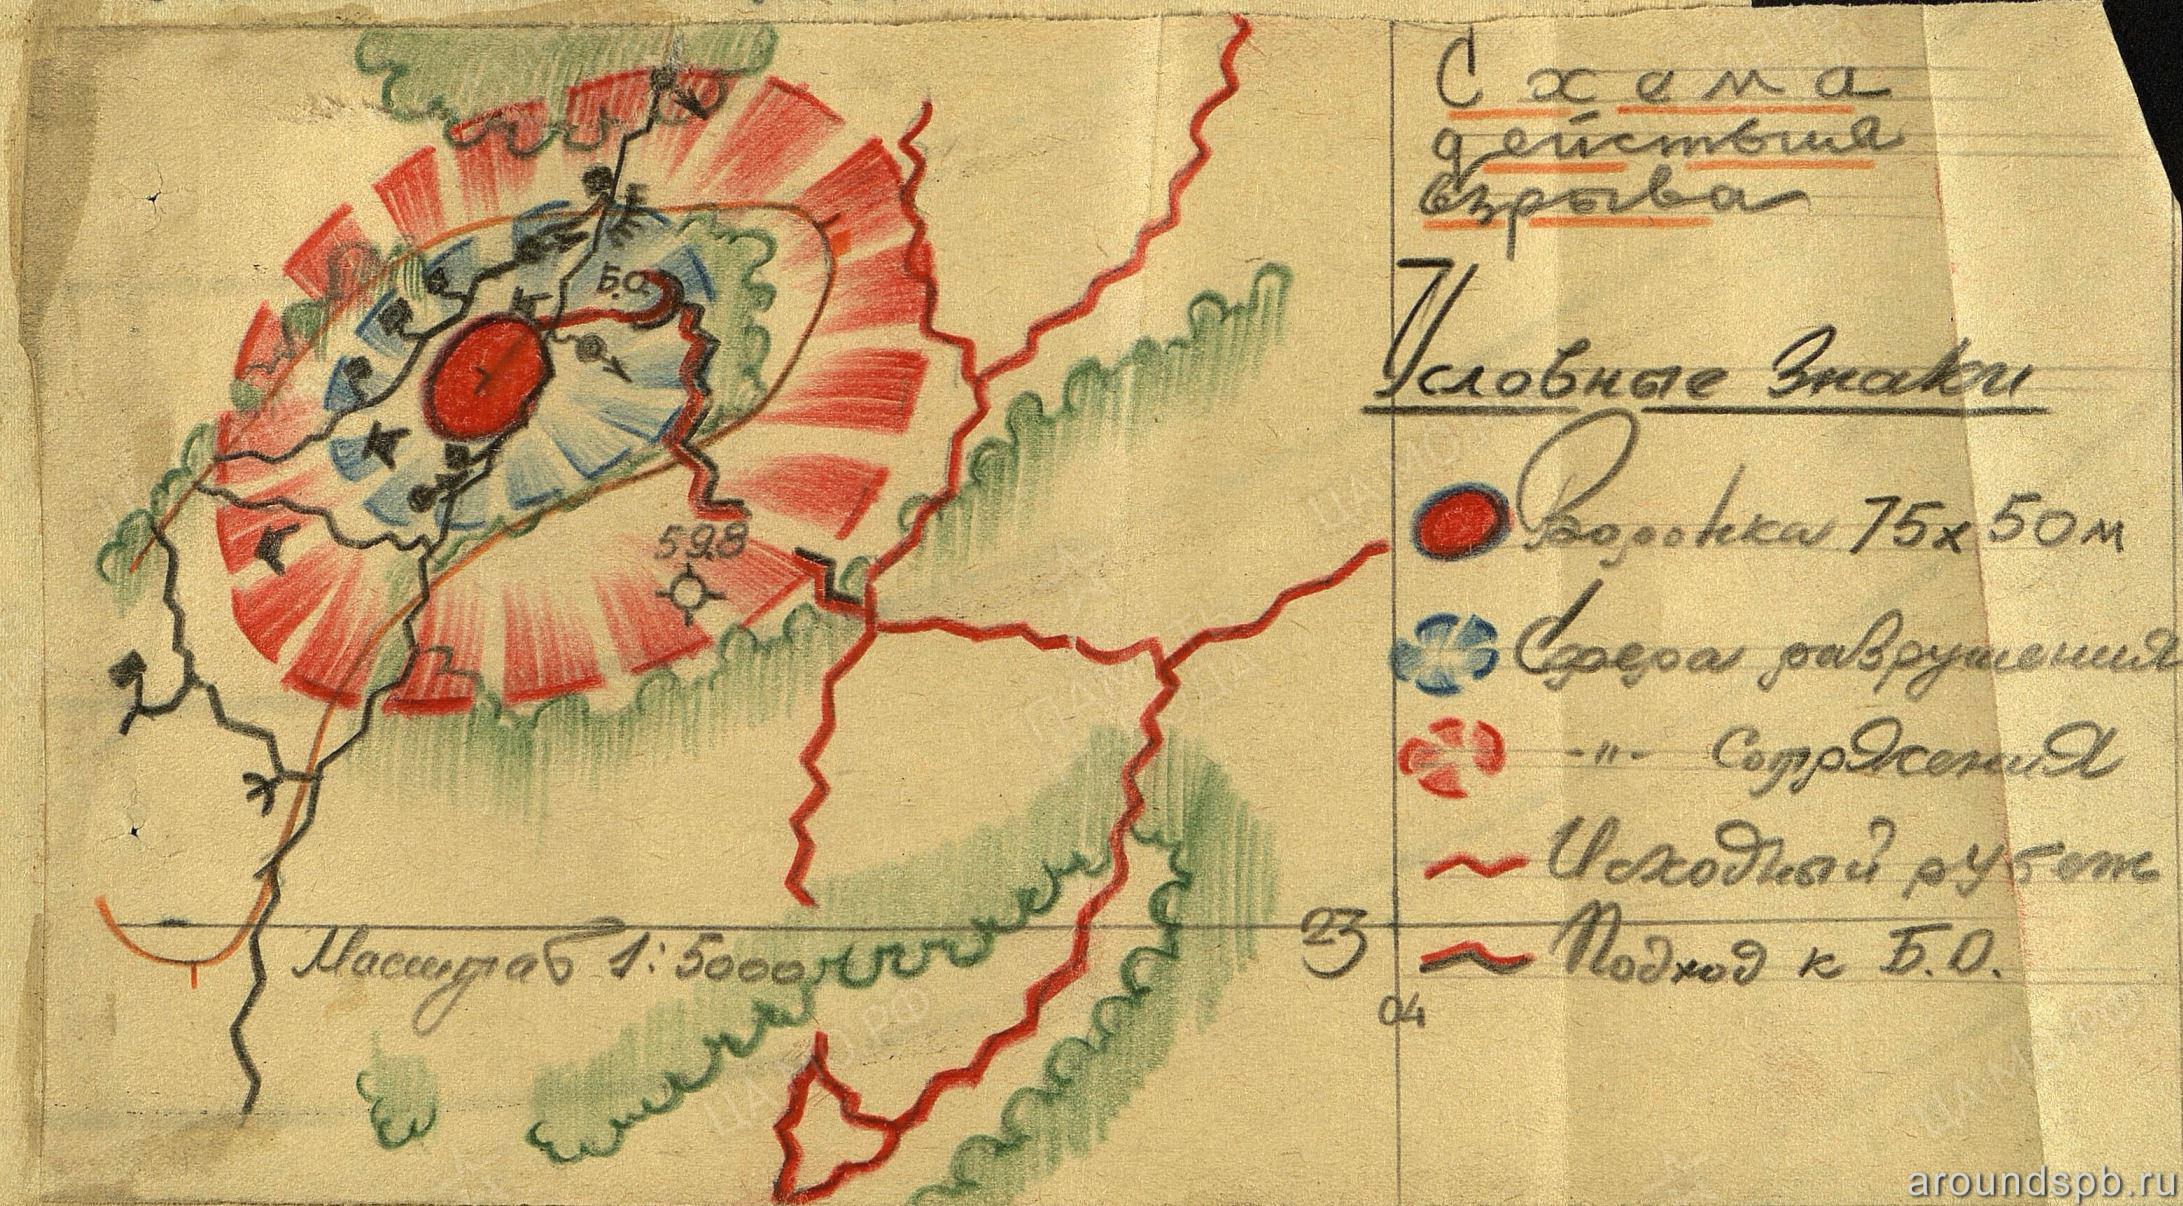 Схема
действия
взрыва
Условные Знаки
Воронка 75х50м
Сфера разрушения
-"- Сотрясения
Исходный рубеж
Подход к Б.О.
Б.О.
59.8
Масштаб 1:5000
23
04
ЦАМО.РФ
aroundspb.ru